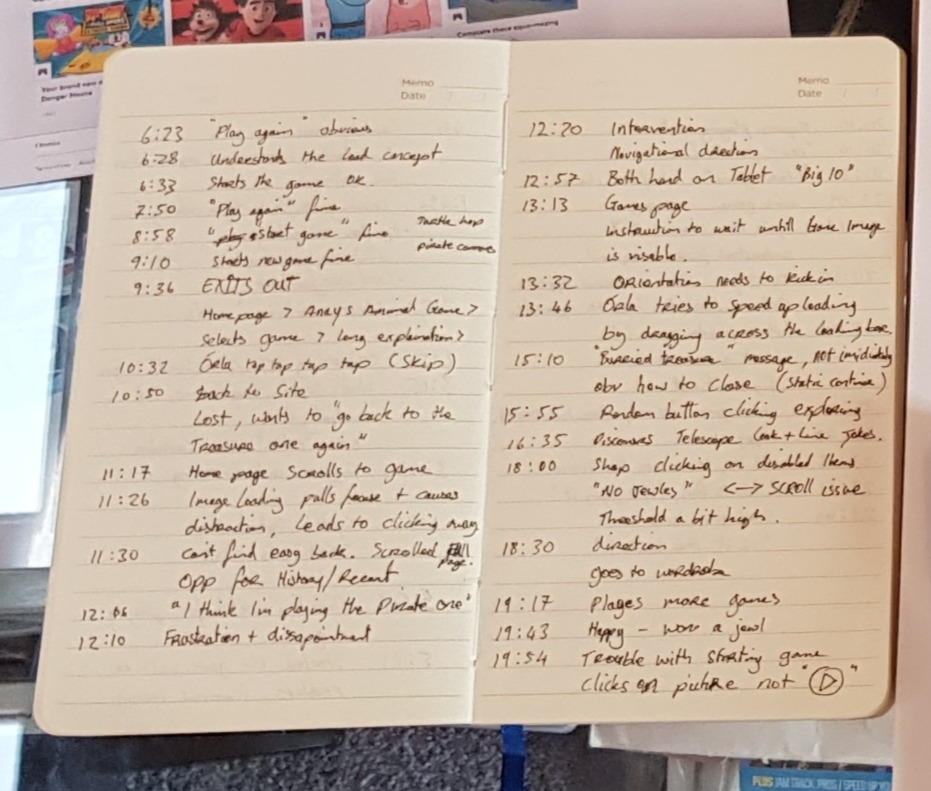 Compare these equa-mazing
Your brand new
Danger Mouse
Memo
Date
6:23 "Play again" obvious
6:28 Understands the load concept
6:33 Starts the game OK.
7:50 "Play again" fine
Turtle hop
8:58 "start game" fine
pirate cannon
9:10 Starts new game fine
9:36 EXITS OUT
Homepage > Andys Animal Game >
Selects game > long explanation >
10:32 Orla tap tap tap tap (Skip)
10:50 Back to Site
Lost, wants to "go back to the
Treasure one again"
11:17 Home page Scrolls to game
11:26 Image loading pulls focus + causes
distraction, Leads to clicking away
11:30 Can't find easy back. Scrolled full page.
Opp for History/Recent
12:06 "I think I'm playing the Pirate one"
12:10 Frustration + dissapointment
Memo
Date
12:20 Intervention
Navigational direction
12:57 Both hand on Tablet "Big 10"
13:13 Games page
instruction to wait untill Game Image
is visable.
13:32 Orientation needs to kick in
13:46 Orla tries to speed up loading
by dragging across the loading bar.
15:10 "Burried treasure" message, not imidiately
obv how to close (Static continue)
15:55 Random button clicking exploring
16:35 Discovers Telescope Look + Line Jokes.
18:00 Shop clicking on disabled Items
"No Jewles" <-> SCROLL issue
Threshold a bit high.
18:30 direction
goes to wardrobe
19:17 Playes more games
19:43 Happy - won a jewl
19:54 Trouble with starting game
clicks on picture not "▷"
PLUS JAM TRACK PROS | SPEED UP